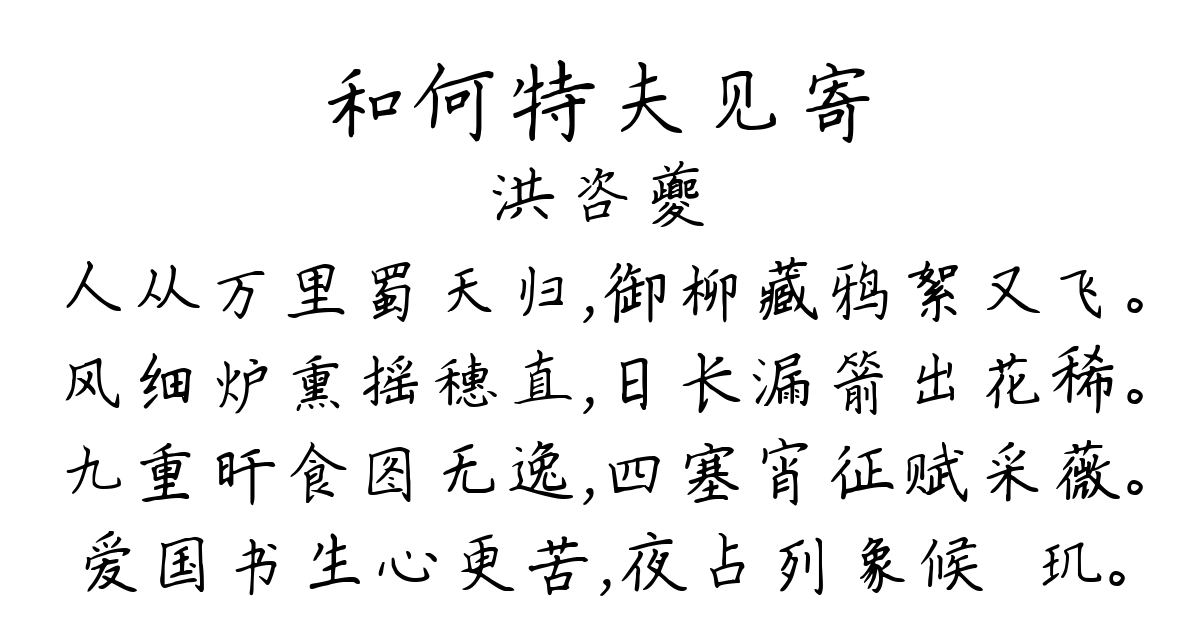 和何特夫见寄
洪咨夔
人从万里蜀天归,御柳藏鸦絮又飞。
风细炉熏摇穗直,日长漏箭出花稀。
九重旰食图无逸,四塞宵征赋采薇。
爱国书生心更苦,夜占列象候 玑。